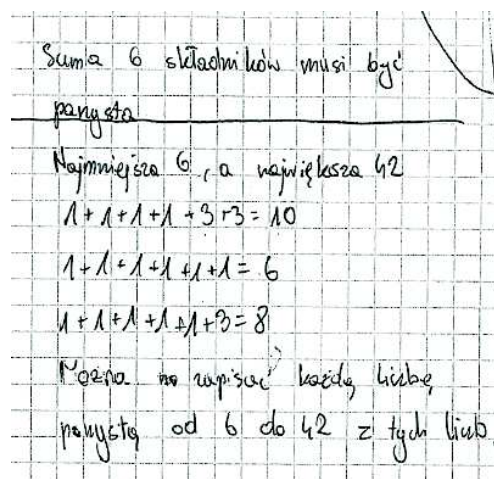 Suma 6 składników musi być
parzysta
Najmniejsza 6, a największa 42
1+1+1+1+3+3=10
1+1+1+1+1+1=6
1+1+1+1+1+3=8
Można no zapisać każdą liczbę
parzystą od 6 do 42 z tych liczb